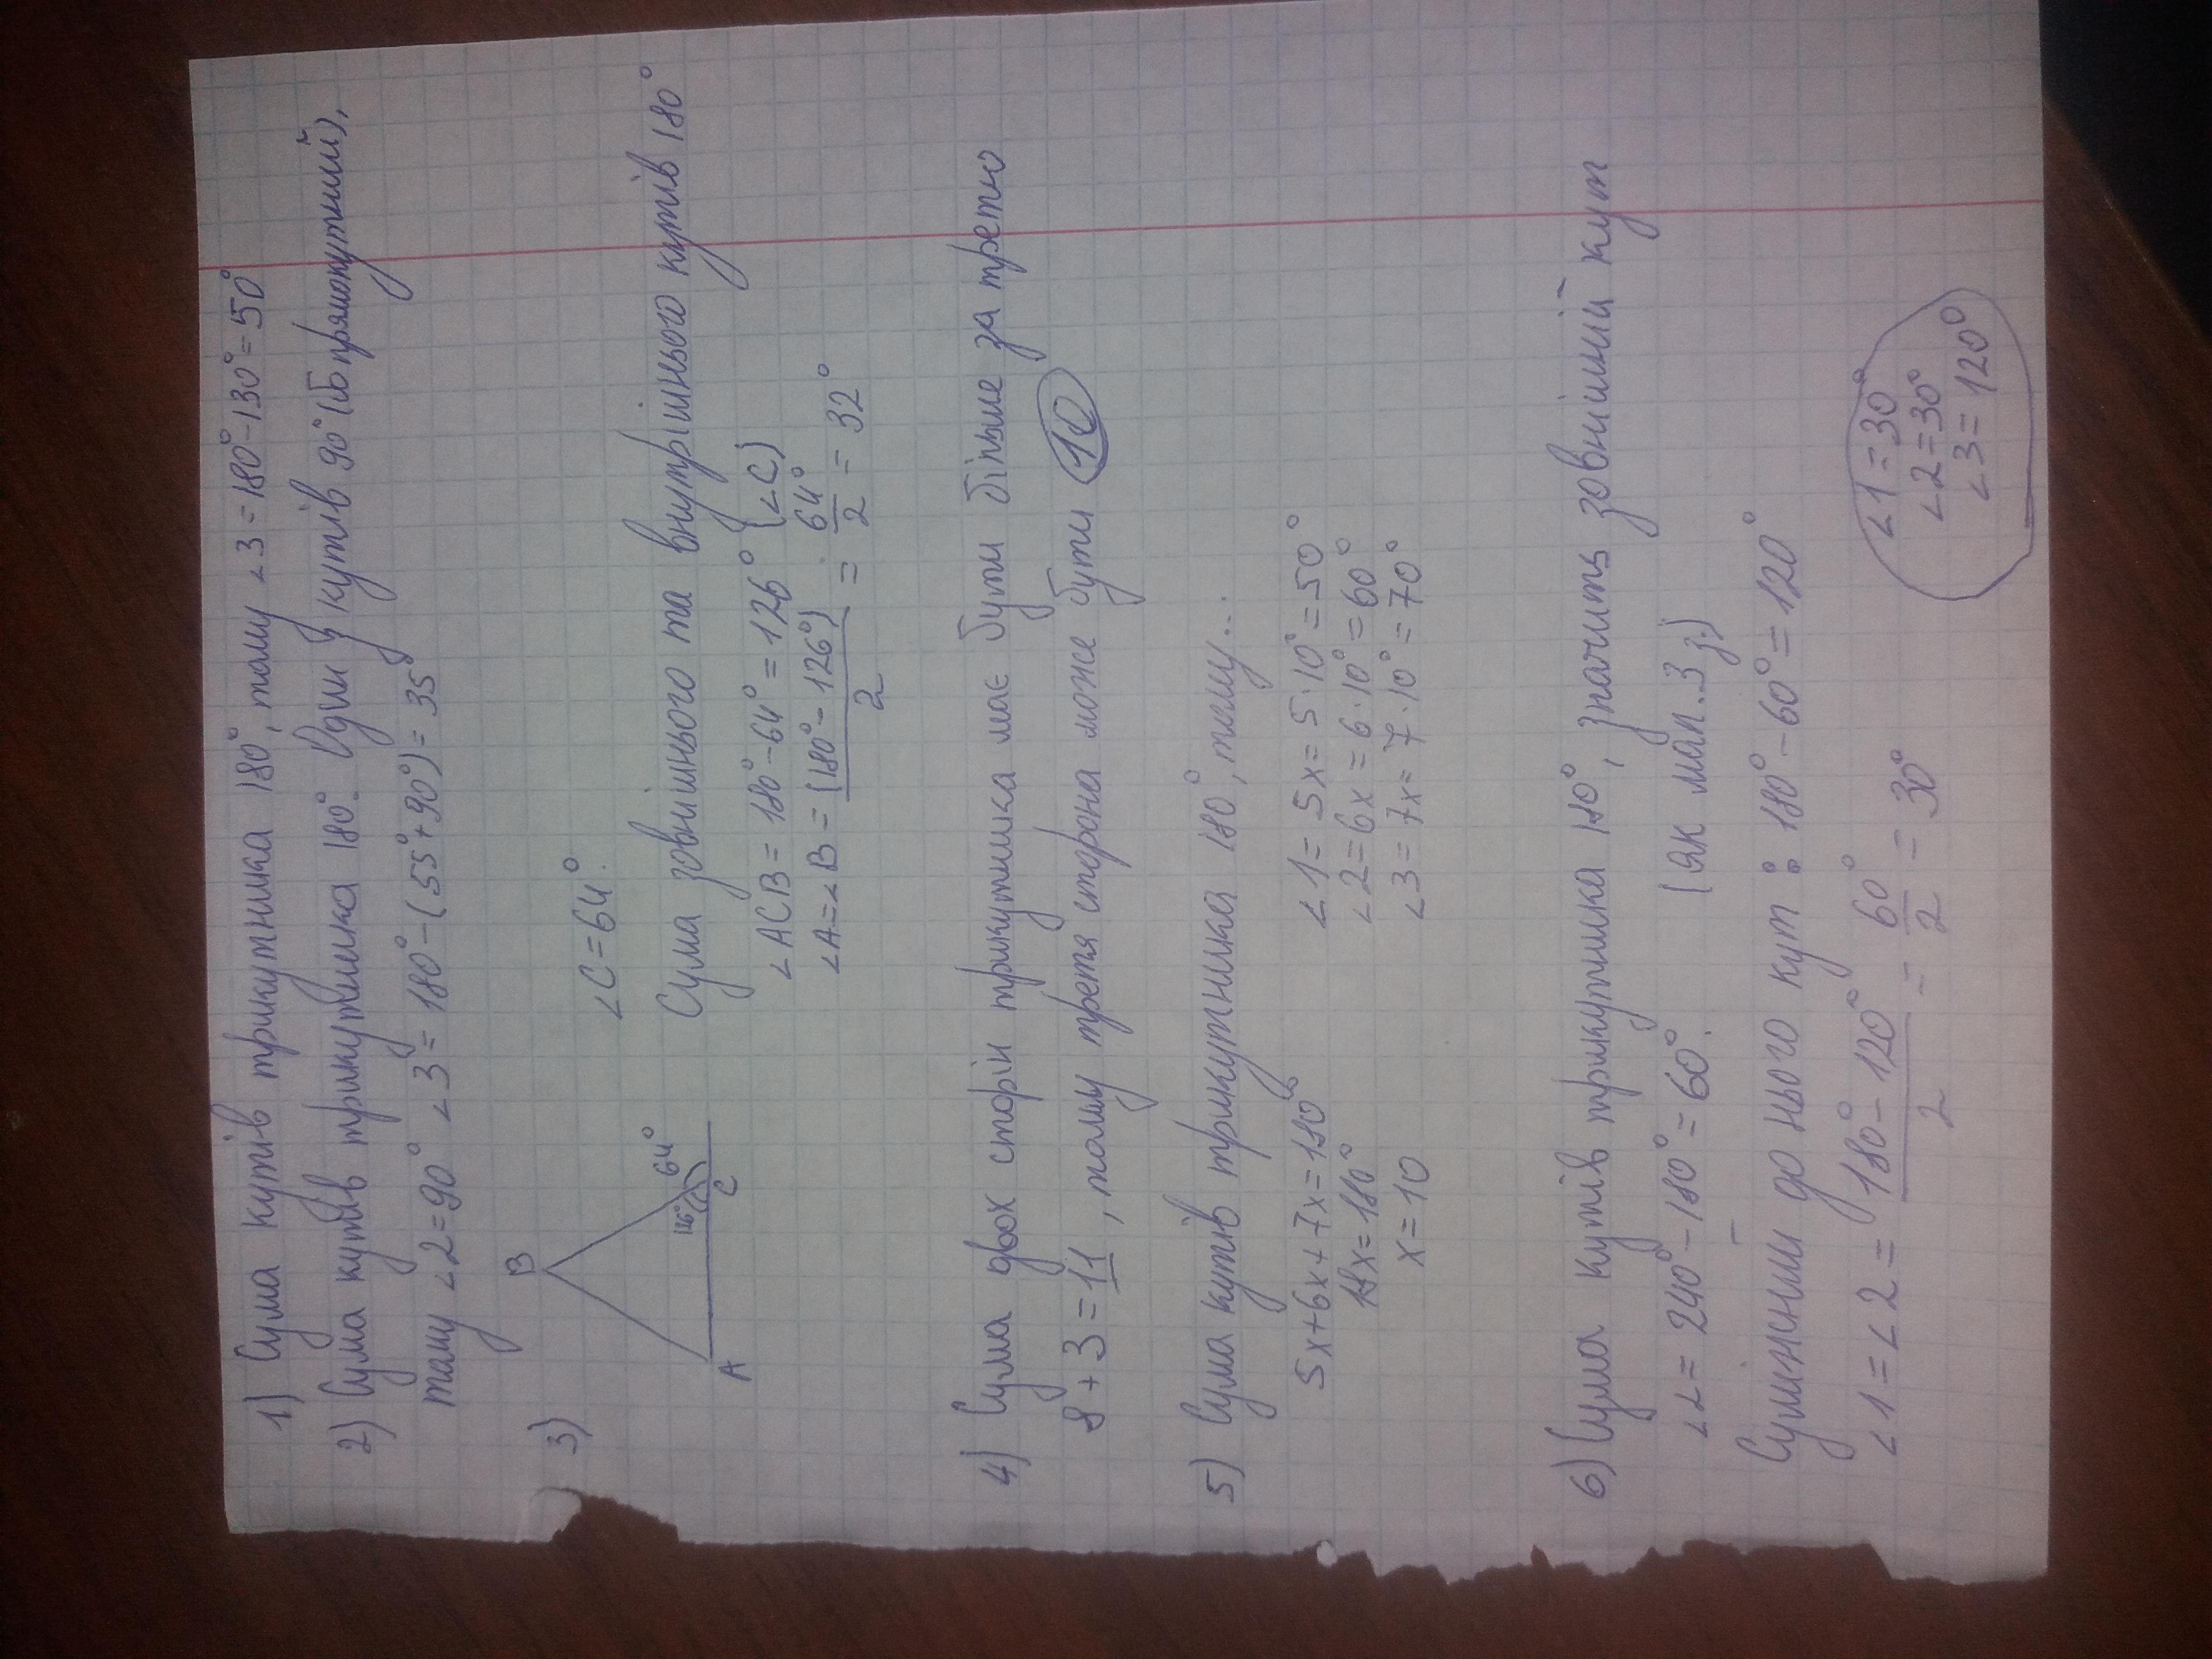 1) Сума кутів трикутника 180°, тому ∠3 = 180° - 130° = 50°
2) Сума кутів трикутника 180°. Один з кутів 90° (бо прямокутний),
тому ∠2 = 90° ∠3 = 180° - (55° + 90°) = 35°
3)
B
A
C
126°
64°
∠C = 64°.
Сума зовнішнього та внутрішнього кутів 180°
∠ACB = 180° - 64° = 126° (∠C)
∠A = ∠B = (180° - 126°) / 2 = 64° / 2 = 32°
4) Сума двох сторін трикутника має бути більше за третю
8 + 3 = 11, тому третя сторона може бути 10
5) Сума кутів трикутника 180°, тому...
5x + 6x + 7x = 180°
18x = 180°
x = 10
∠1 = 5x = 5 · 10° = 50°
∠2 = 6x = 6 · 10° = 60°
∠3 = 7x = 7 · 10° = 70°
6) Сума кутів трикутника 180°, значить зовнішний кут
∠ = 240° - 180° = 60°. (як мал. 3 з)
Суміжний до нього кут : 180° - 60° = 120°
∠1 = ∠2 = 180° - 120° / 2 = 60° / 2 = 30°
∠1 = 30°
∠2 = 30°
∠3 = 120°